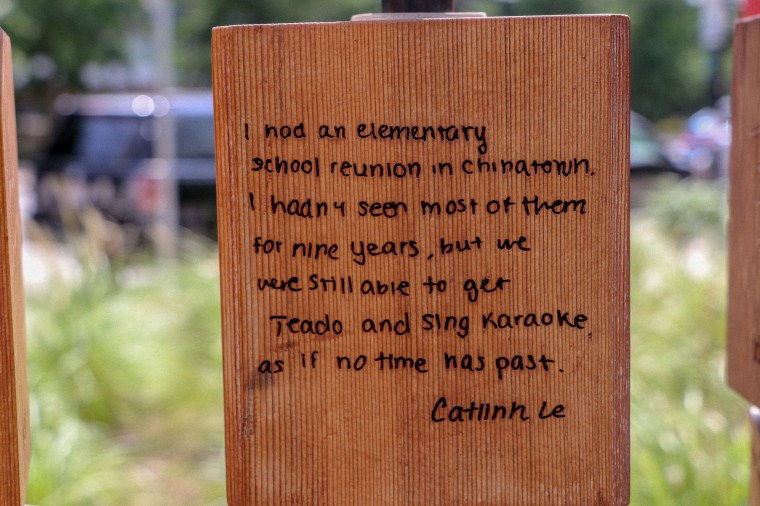 I had an elementary
school reunion in chinatown.
I hadn't seen most of them
for nine years, but we
were still able to get
Teado and sing karaoke
as if no time has past.
Catlinh Le